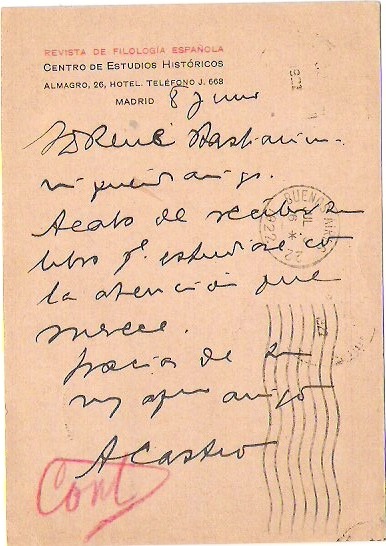 REVISTA DE FILOLOGÍA ESPAÑOLA
CENTRO DE ESTUDIOS HISTÓRICOS
ALMAGRO, 26, HOTEL. TELÉFONO J. 668
MADRID 8 Junio
René Bastianini
mi querido amigo.
Acabo de recibir su
libro q. estudiaré con
la atención que
merece.
Gracias de su
muy afmo amigo
ACastro
Cont
BUENOS AIRES
1922